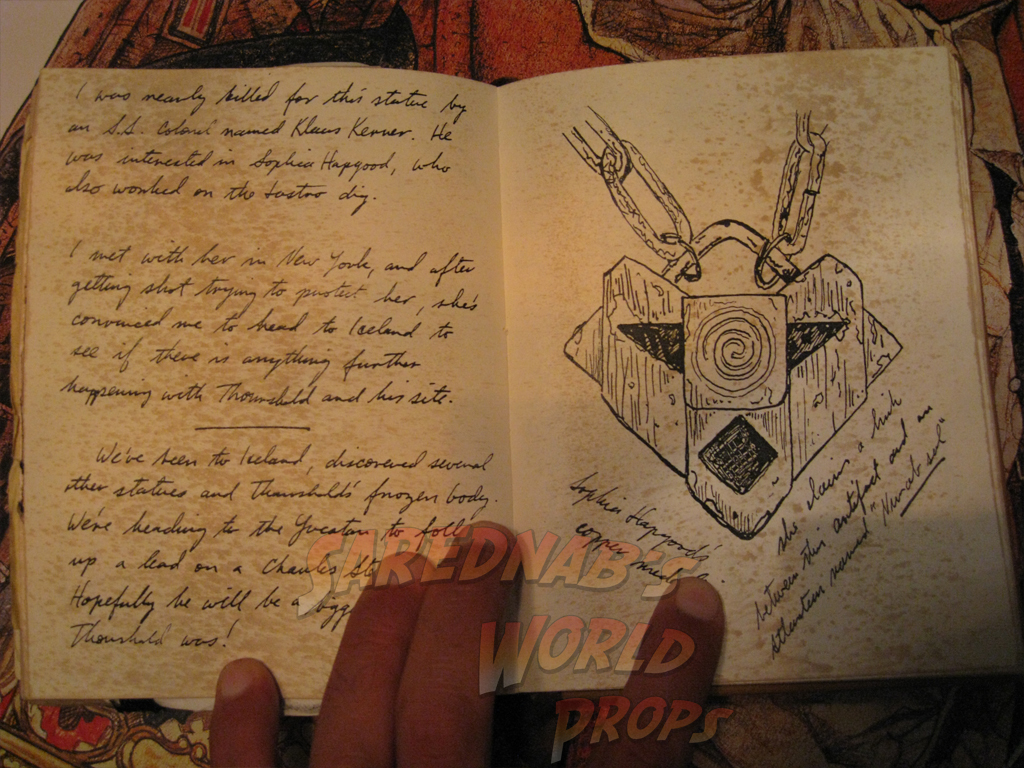 I was nearly killed for this statue by
an S.S. Colonel named Klaus Kerner. He
was interested in Sophia Hapgood, who
also worked on the Jastro dig.
I met with her in New York, and after
getting shot trying to protect her, she's
convinced me to head to Iceland to
see if there is anything further
happening with Thorshold and his site.
We've been to Iceland, discovered several
other statues and Thorshold's frozen body.
We're heading to the Yucatan to foll
up a lead on a Charles St
Hopefully he will be a
Thorshold was!
Sophia Hapgood's
copper
she claims a link
between this artifact and an
Atlantean named "Nur-ab-sal"
SAREDNAB'S
WORLD
PROPS